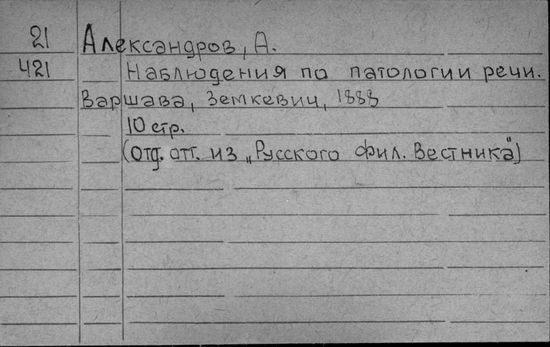 21 Александров, А.
421 Наблюдения по патологии речи.
Варшава, Земкевич, 1888
10 стр.
(отд. отт. из „Русского фил. Вестника")